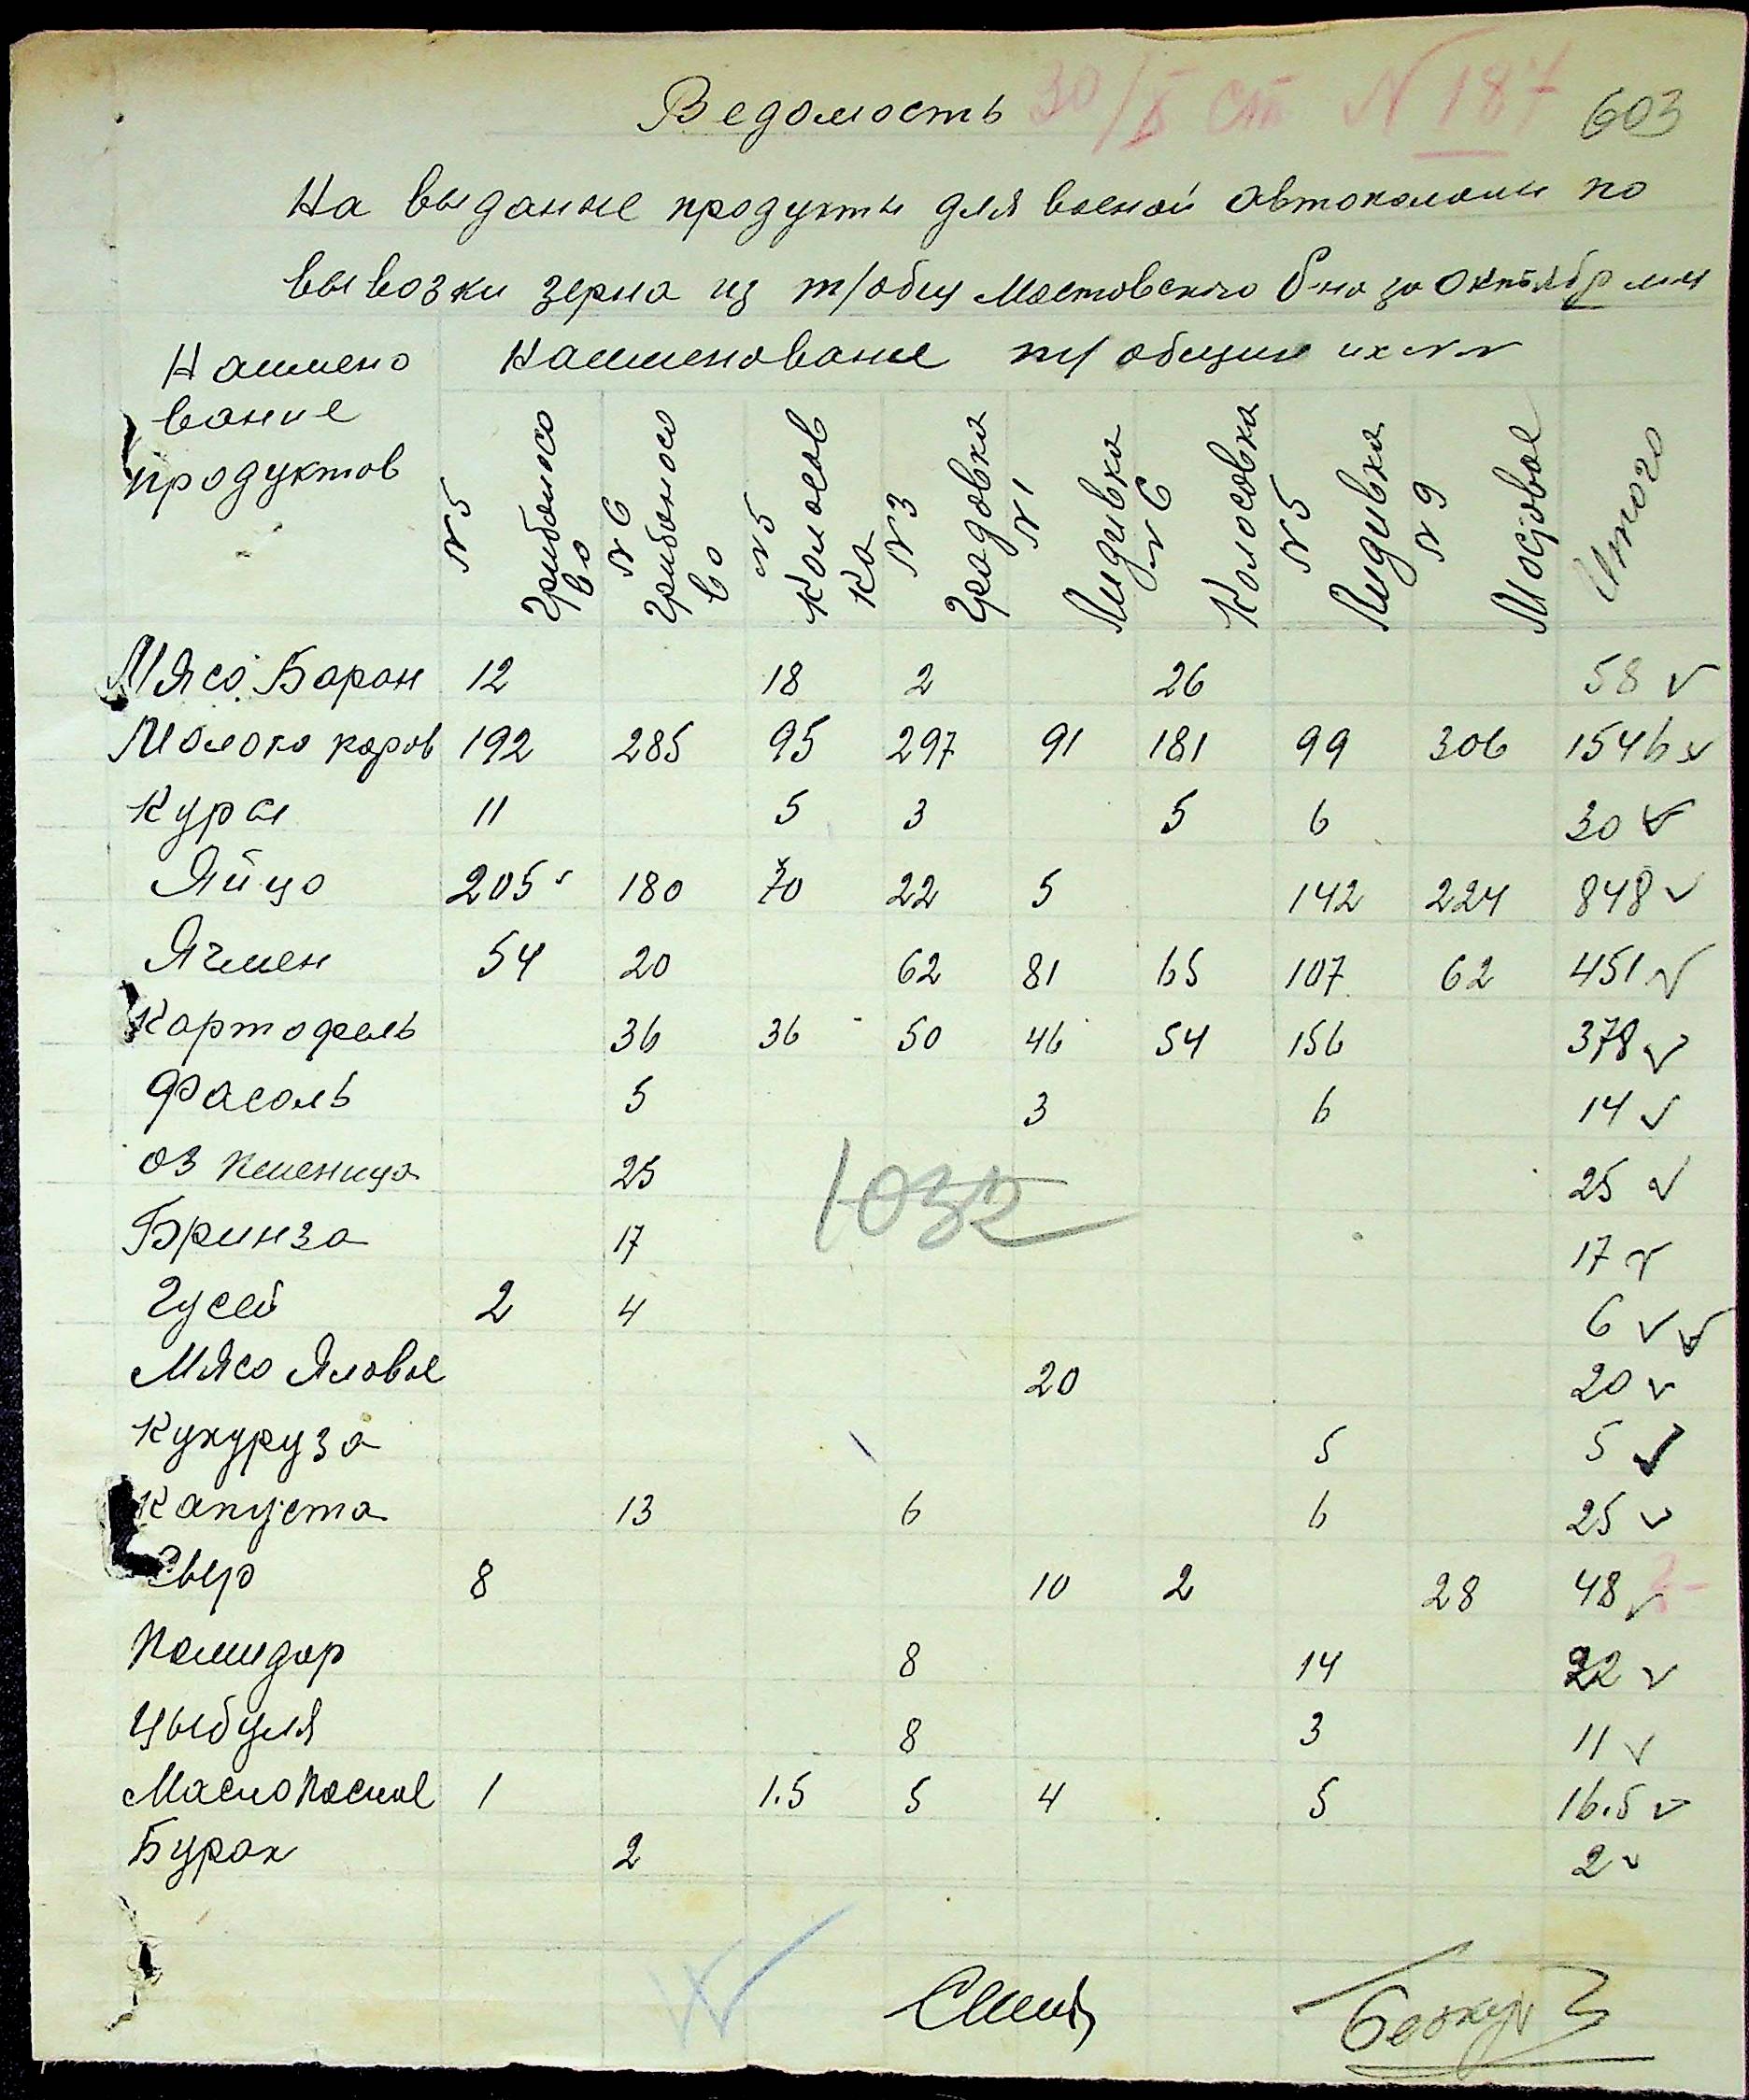 Ведомость 30/X ст N 187 603
На выданые продукты для военой автоколоны по
вывозки зерна из т/общ Мостовского р-на за Октябр м-ц
Наимено
вание
продуктов
Наименование т/ общин их NN
N5 Грибоносово
N6 Грибоносово
N5 Колосовка
N3 Градовка
N1 Лидивка
N6 Колосовка
N5 Лидивка
N9 Мостовое
Итого
Мясо Баран 12 18 2 26 58
Молоко коров 192 285 95 297 91 181 99 306 1546
Куры 11 5 3 5 6 30
Яйцо 205 180 70 22 5 142 224 848
Ячмен 54 20 62 81 65 107 62 451
Картофель 36 36 50 46 54 156 378
Фасоль 5 3 6 14
оз пшеница 25 25
Бринза 17 17
Гусей 2 4 6
Мясо Яловое 20 20
Кукуруза 5 5
Капуста 13 6 6 25
Сыр 8 10 2 28 48
Помидор 8 14 22
Цыбуля 8 3 11
Масло Посное 1 1.5 5 4 5 16.5
Бурак 2 2
1032